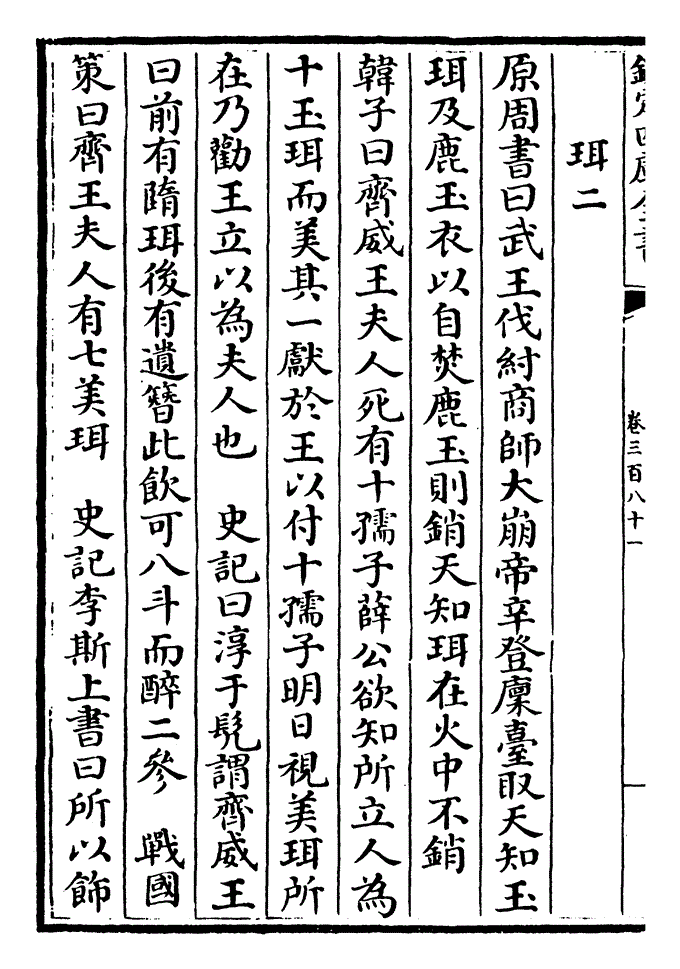 欽定四庫全書
卷三百八十一
珥二
原周書曰武王伐紂商師大崩帝辛登廩臺取天知玉
珥及鹿玉衣以自焚鹿玉則銷天知珥在火中不銷
韓子曰齊威王夫人死有十孺子薛公欲知所立人為
十玉珥而美其一獻於王以付十孺子明日視美珥所
在乃勸王立以為夫人也　史記曰淳于髡謂齊威王
曰前有隋珥後有遺簪此飲可八斗而醉二參　戰國
策曰齊王夫人有七美珥　史記李斯上書曰所以飾